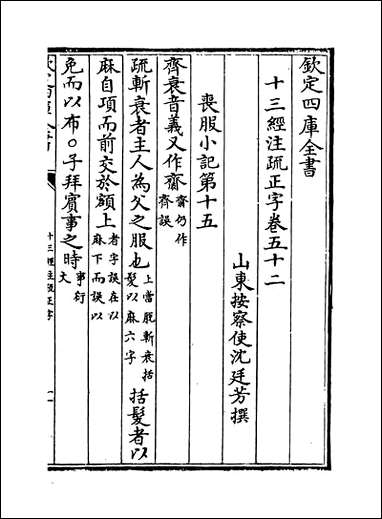 欽定四庫全書
十三經注疏正字卷五十二
山東按察使沈廷芳撰
喪服小記第十五
齊衰音義又作齋齋仍作齊誤
疏斬衰者主人為父之服也上當脫斬衰括髮以麻六字括髮者以
麻自項而前交於額上者字誤在以麻下而誤以
免而以布○子拜賓事之時事衍文
十三經注疏正字
一